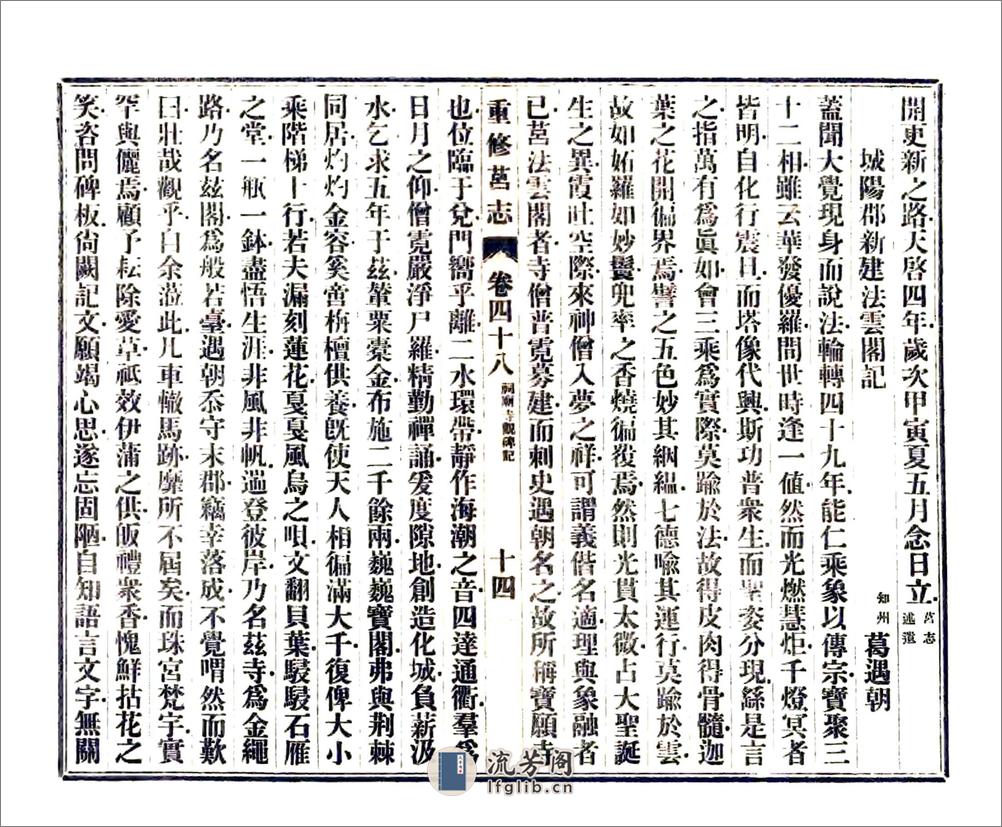 開更新之路天啓四年歲次甲寅夏五月念日立莒志述遺
城陽郡新建法雲閣記
知州葛遇朝
蓋聞大覺現身而說法輪轉四十九年能仁乘象以傳宗寶聚三
十二相雖云華發優羅問世時逢一値然而光燃慧炬千燈冥者
皆明自化行震旦而塔像代興斯功普衆生而聖姿分現繇是言
之指萬有爲眞如會三乘爲實際莫踰於法故得皮肉得骨髓迦
葉之花開徧界焉譬之五色妙其絪縕七德喩其運行莫踰於雲
故如妬羅如妙鬘兜率之香燒徧復焉然則光貫太微占大聖誕
生之異霞吐空際來神僧入夢之祥可謂義偕名適理與象融者
已莒法雲閣者寺僧普霓募建而刺史遇朝名之故所稱寶願寺
重修莒志 卷四十八 祠廟寺觀碑記 十四
也位臨于兌門嚮乎離二水環帶靜作海潮之音四達通衢羣爲
日月之仰僧霓嚴淨尸羅精勤禪誦爰度隙地創造化城負薪汲
水乞求五年于茲輦粟橐金布施二千餘兩巍巍寶閣弗與荆棘
同居灼灼金容奚啻栴檀供養旣使天人相徧滿大千復俾大小
乘階梯十行若夫漏刻蓮花戛戛風烏之唄文翻貝葉駸駸石雁
之堂一瓶一鉢盡悟生涯非風非帆遄登彼岸乃名茲寺爲金繩
路乃名茲閣爲般若臺遇朝忝守末郡竊幸落成不覺喟然而歎
曰壯哉觀乎自余蒞此凡車轍馬跡靡所不屆矣而珠宮梵宇實
罕與儷焉顧予耘除愛草祗效伊蒲之供皈禮衆香愧鮮拈花之
笑咨問碑板尙闕記文願竭心思遂忘固陋自知語言文字無關
流芳阁
lfglib.cn